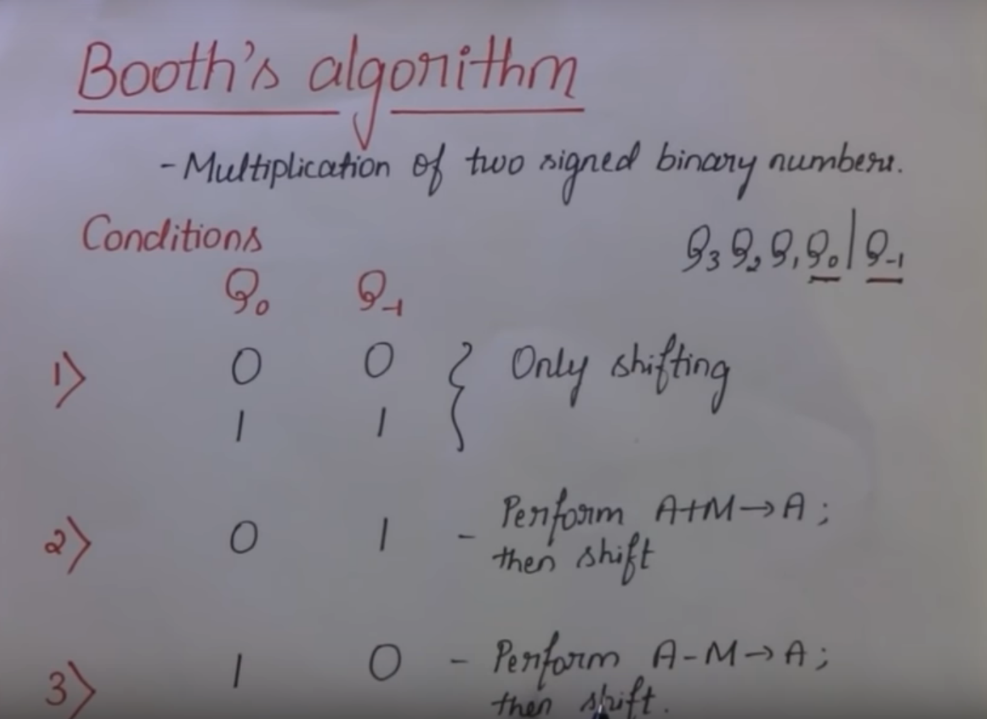 Booth's algorithm
- Multiplication of two signed binary numbers.
Conditions
Q₃ Q₂ Q₁ Q₀ | Q₋₁
Q₀ Q₋₁
1) 0 0 } Only shifting
1 1
2) 0 1 - Perform A+M→A ;
then shift
3) 1 0 - Perform A-M→A ;
then shift.